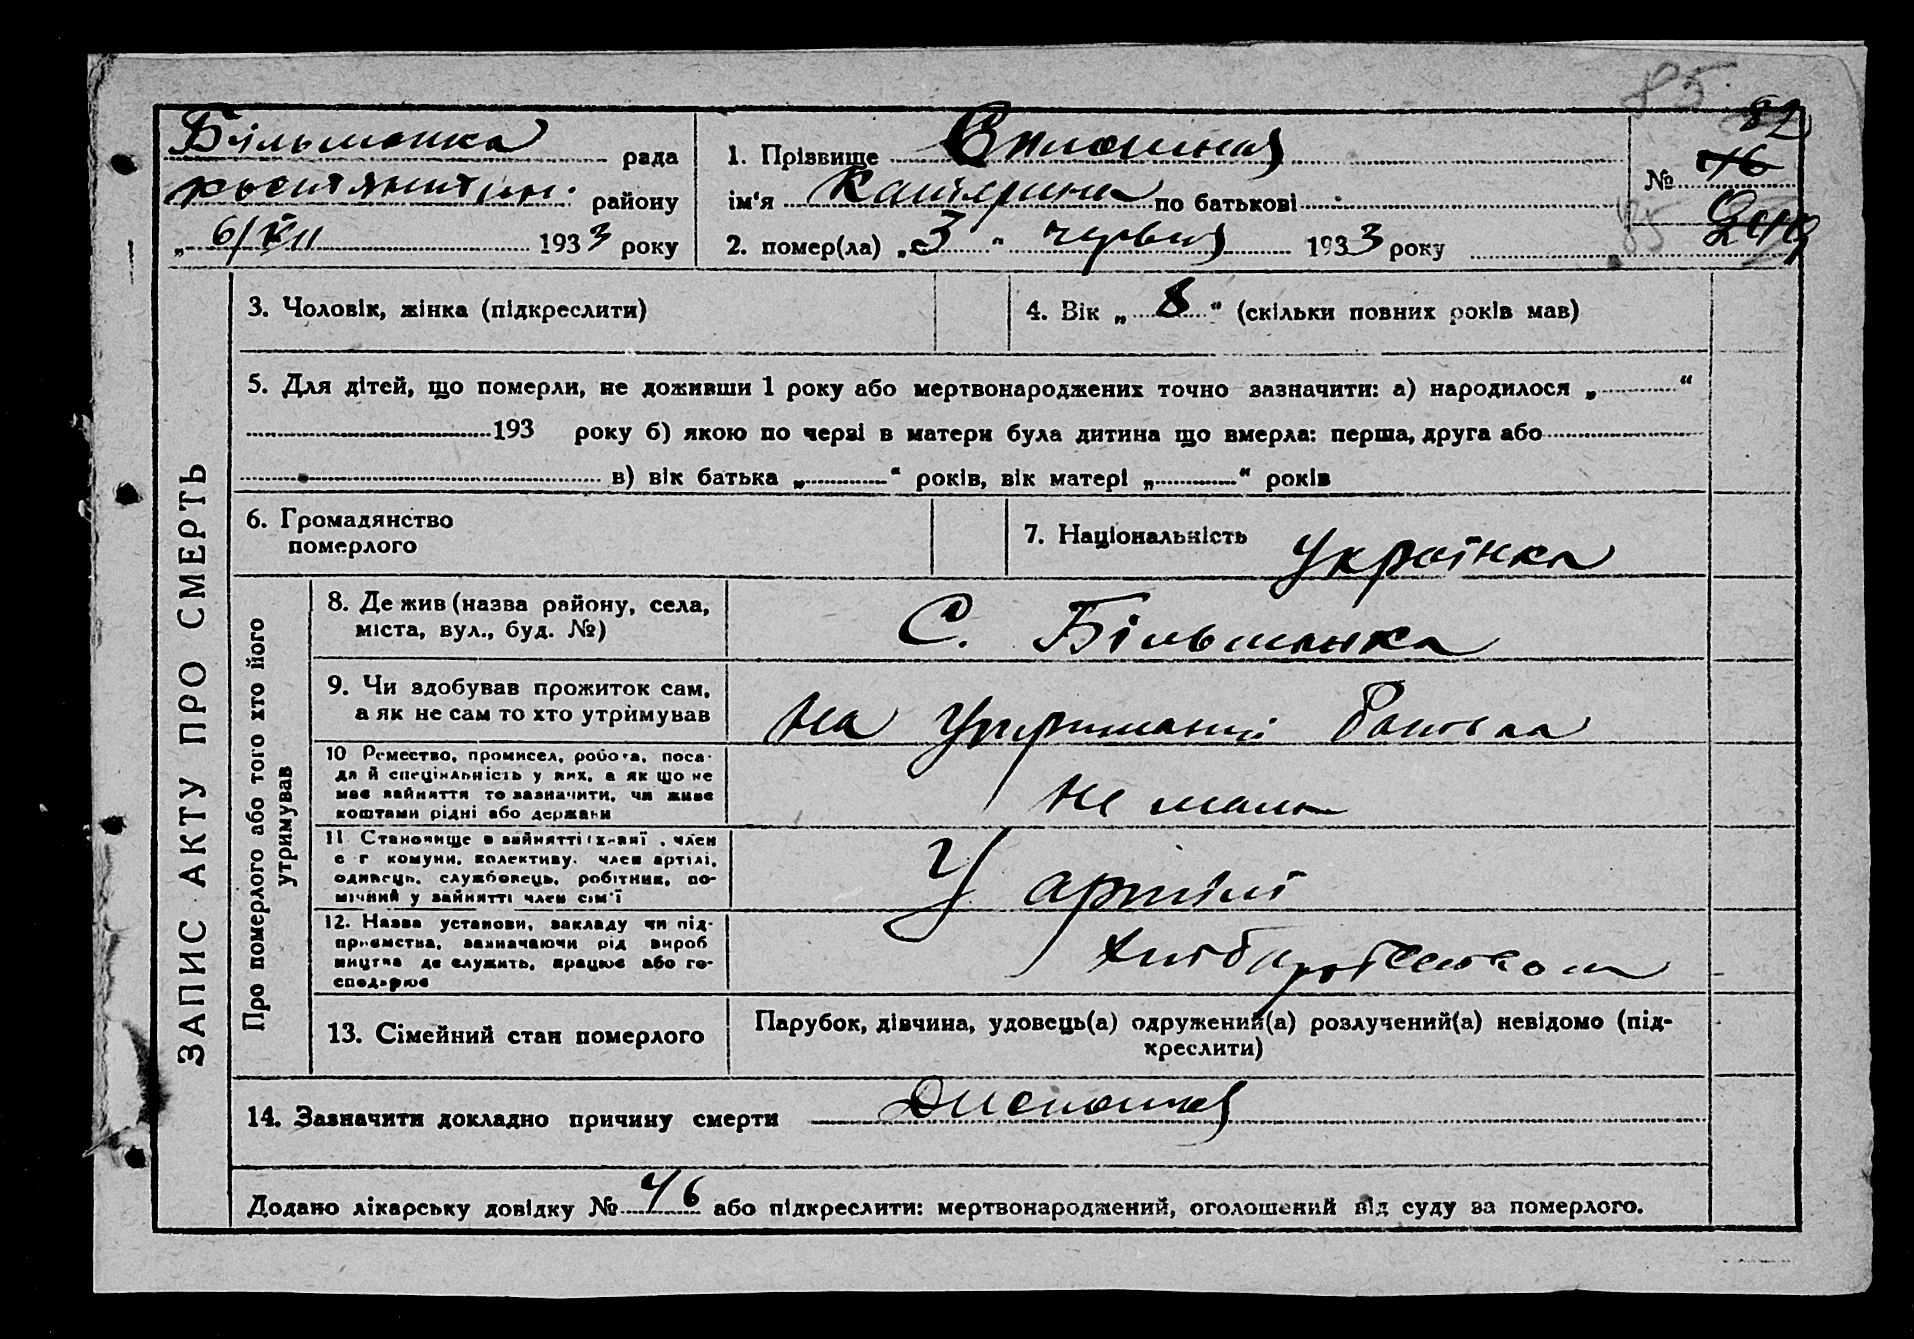 85
82
Більшанка рада
Костянтин. району
„ 6/VII 1933 року
1. Прізвище
ім'я Катерина по батькові
2. помер(ла) „ 3 " червня 1933 року
№ 46
85
249
ЗАПИС АКТУ ПРО СМЕРТЬ
3. Чоловік, жінка (підкреслити)
4. Вік „ 8 " (скільки повних років мав)
5. Для дітей, що померли, не доживши 1 року або мертвонароджених точно зазначити: а) народилося „ "
193 року б) якою по черзі в матери була дитина що вмерла: перша, друга або
в) вік батька „ " років, вік матері „ " років
6. Громадянство
померлого
7. Національність Українка
Про померлого або того хто його
утримував
8. Де жив (назва району, села,
міста, вул., буд. №)
С. Більшанка
9. Чи здобував прожиток сам,
а як не сам то хто утримував
на утриманні батька
10 Ремество, промисел, робота, поса-
да й спеціяльність у них, а як що не
має зайняття то зазначити, чи живе
коштами рідні або держави
не мала
11 Становище в зайнятті член
с г комуни, колективу. член артілі,
одинець, службовець, робітник, по-
мічний у зайнятті член сім'ї
У артілі
12. Назва установи, закладу чи під-
приємства, зазначаючи рід вироб
ництва де служить, працює або го-
сподарює
хлібробством
13. Сімейний стан померлого
Парубок, дівчина, удовець(а) одружений(а) розлучений(а) невідомо (під-
креслити)
14. Зазначити докладно причину смерти
Додано лікарську довідку № 46 або підкреслити: мертвонароджений, оголошений від суду за померлого.